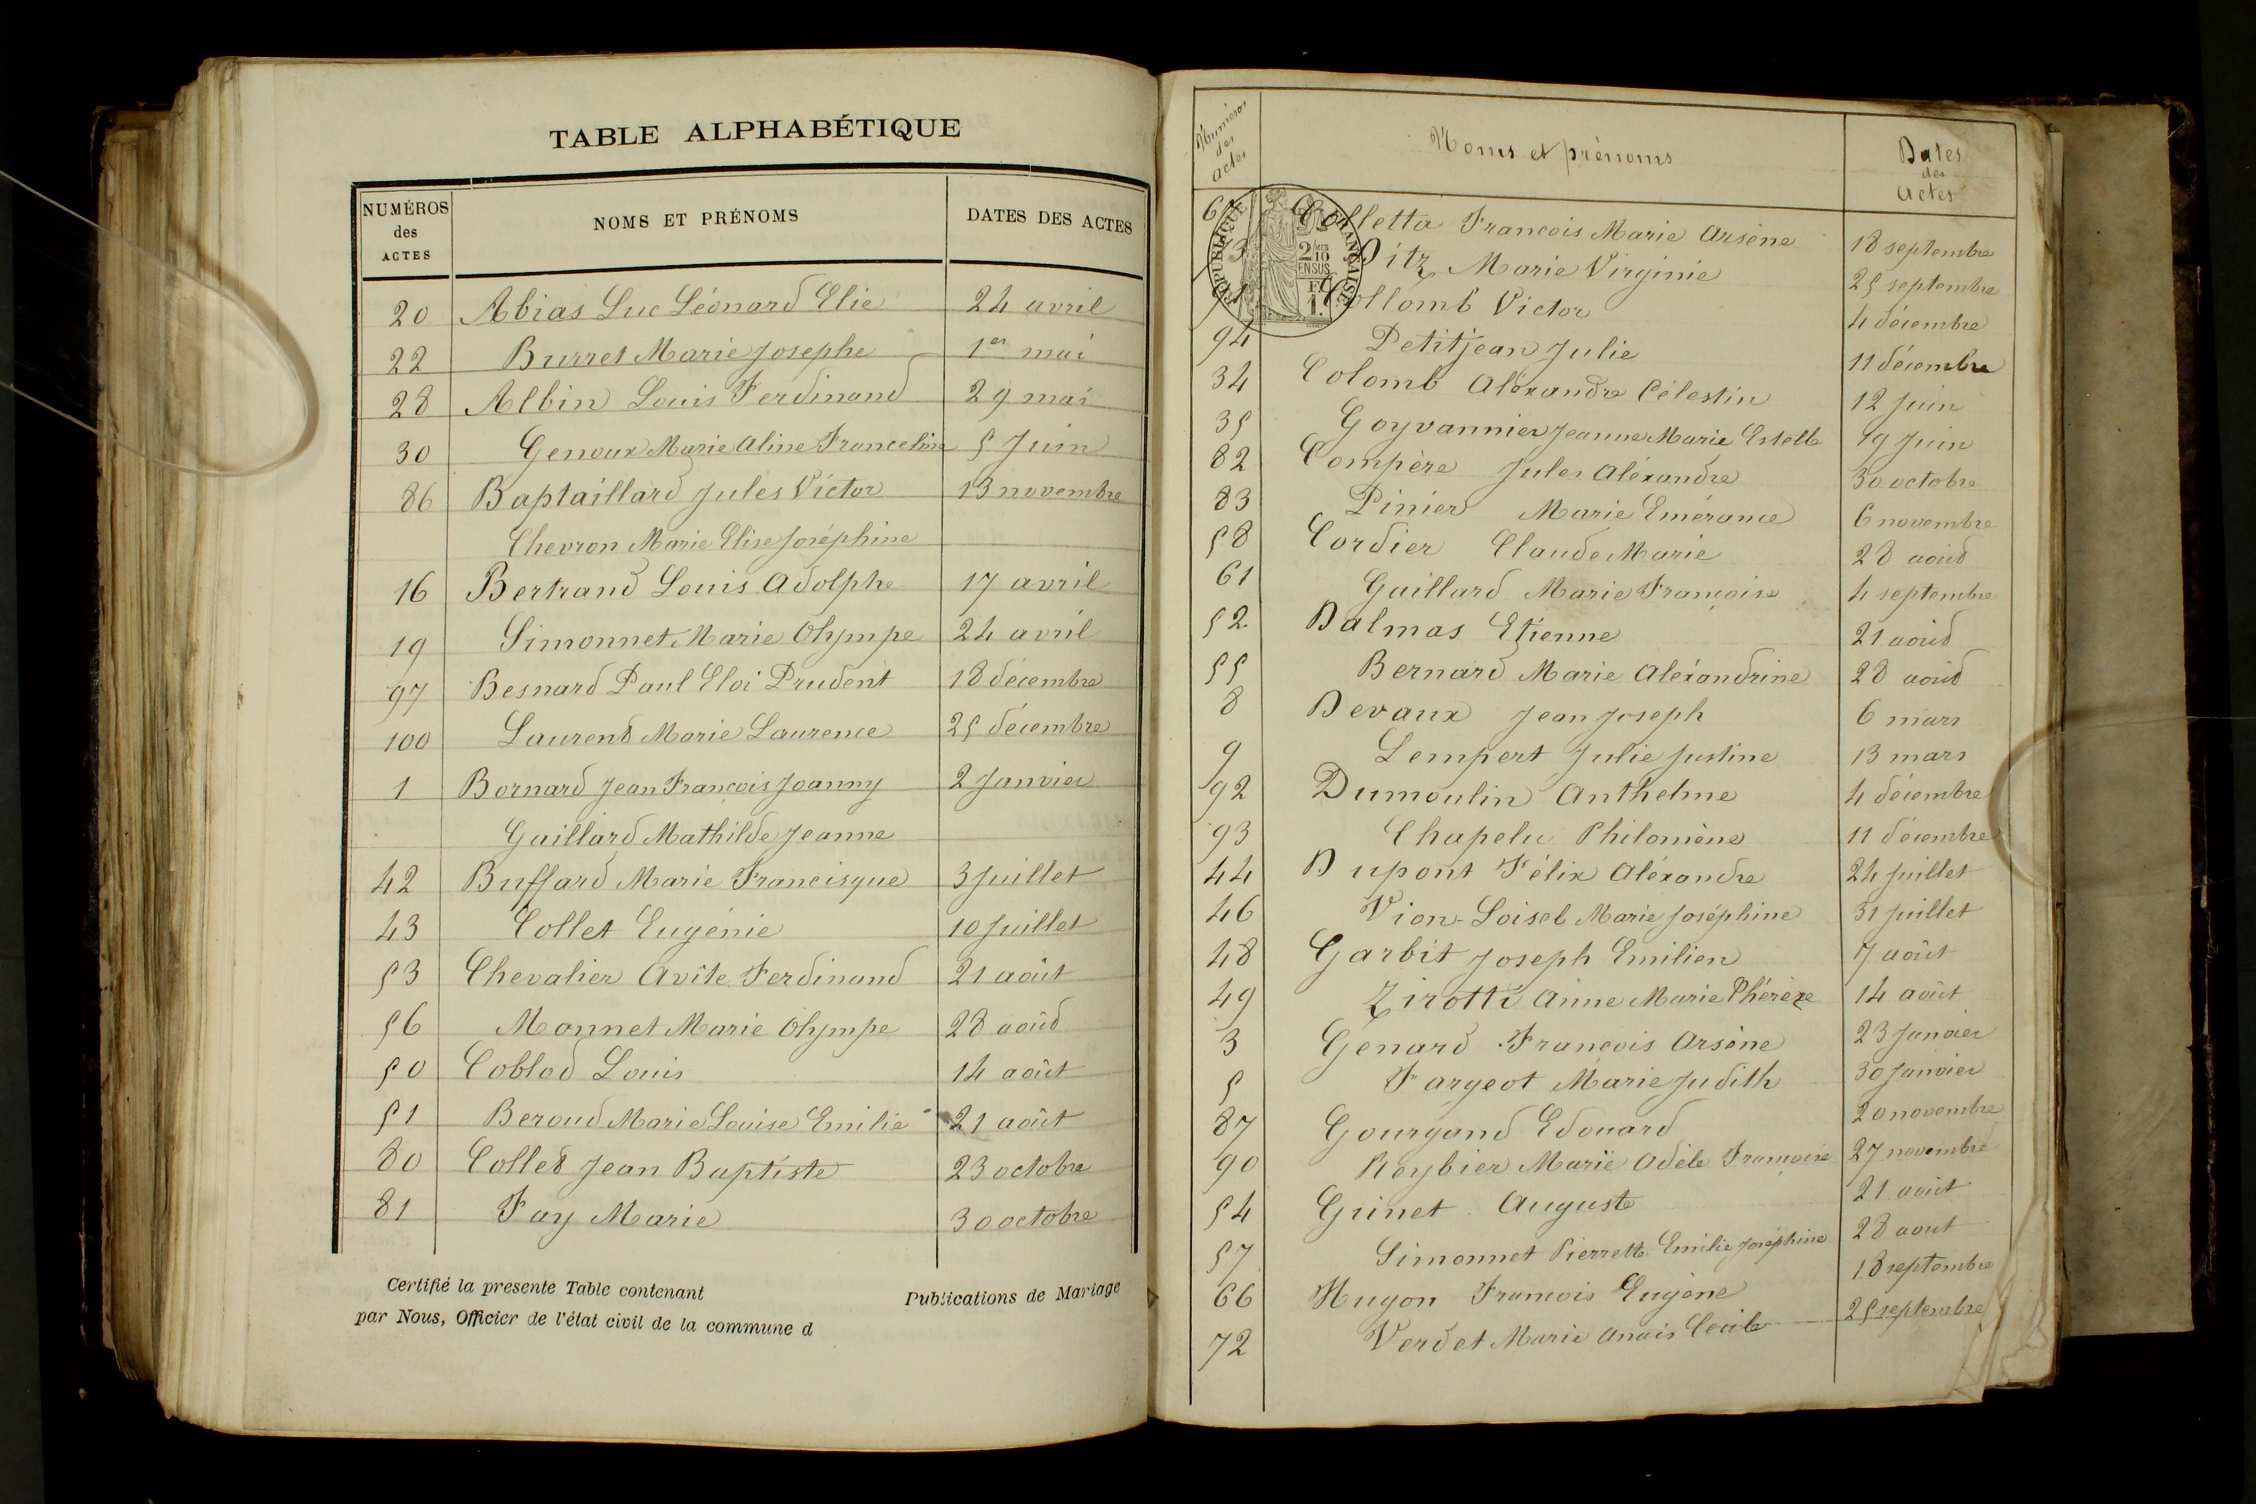 TABLE ALPHABÉTIQUE
NUMÉROS des ACTES NOMS ET PRÉNOMS DATES DES ACTES
20 Abias Luc Léonard Elie 24 avril
22 Burret Marie Josephe 1er mai
28 Albin Louis Ferdinand 29 mai
30 Genoux Marie Aline Franceline 5 Juin
86 Baptaillard Jules Victor 13 novembre
Chevron Marie Elise Joséphine
16 Bertrand Louis Adolphe 17 avril
19 Simonnet Marie Olympe 24 avril
97 Besnard Paul Eloi Prudent 18 décembre
100 Laurent Marie Laurence 25 décembre
1 Bornard Jean François Joanny 2 Janvier
Gaillard Mathilde Jeanne
42 Buffard Marie Francisque 3 Juillet
43 Collet Eugénie 10 Juillet
53 Chevalier Avite Ferdinand 21 août
56 Monnet Marie Olympe 28 août
50 Coblod Louis 14 août
51 Beroud Marie Louise Emilie 21 août
80 Collet Jean Baptiste 23 octobre
81 Fay Marie 30 octobre
Certifié la presente Table contenant Publications de Mariage
par Nous, Officier de l'état civil de la commune d
Numéros des actes Noms et prénoms Dates des Actes
RÉPUBLIQUE FRANÇAISE
2/10 EN SUS
Colletta Francois Marie Arsène 18 septembre
Pitz Marie Virginie 25 septembre
Collomb Victor 4 décembre
94 Petitjean Julie 11 décembre
34 Colomb Aléxandre Célestin 12 Juin
35 Goyvannier Jeanne Marie Estelle 19 Juin
82 Compère Jules Aléxandre 30 octobre
83 Pinier Marie Emérance 6 novembre
58 Cordier Claude Marie 28 août
61 Gaillard Marie Françoise 4 septembre
52 Dalmas Etienne 21 août
55 Bernard Marie Aléxandrine 28 août
8 Devaux Jean Joseph 6 mars
9 Lempert Julie Justine 13 mars
92 Dumoulin Anthelme 4 décembre
93 Chapelu Philomène 11 décembre
44 Dupont Félix Aléxandre 24 Juillet
46 Vion-Loisel Marie Joséphine 31 Juillet
48 Garbit Joseph Emilien 7 août
49 Zirotti Anne Marie Thérèze 14 août
3 Génard Francois Arsène 23 Janvier
5 Fargeot Marie Judith 30 Janvier
87 Gourgand Edouard 20 novembre
90 Reybier Marie Adèle Françoise 27 novembre
54 Guinet Auguste 21 août
57 Simonnet Pierrette Emilie Joséphine 28 aout
66 Hugon Francois Eugène 18 septembre
72 Verdet Marie Anaïs Cecile 25 septembre